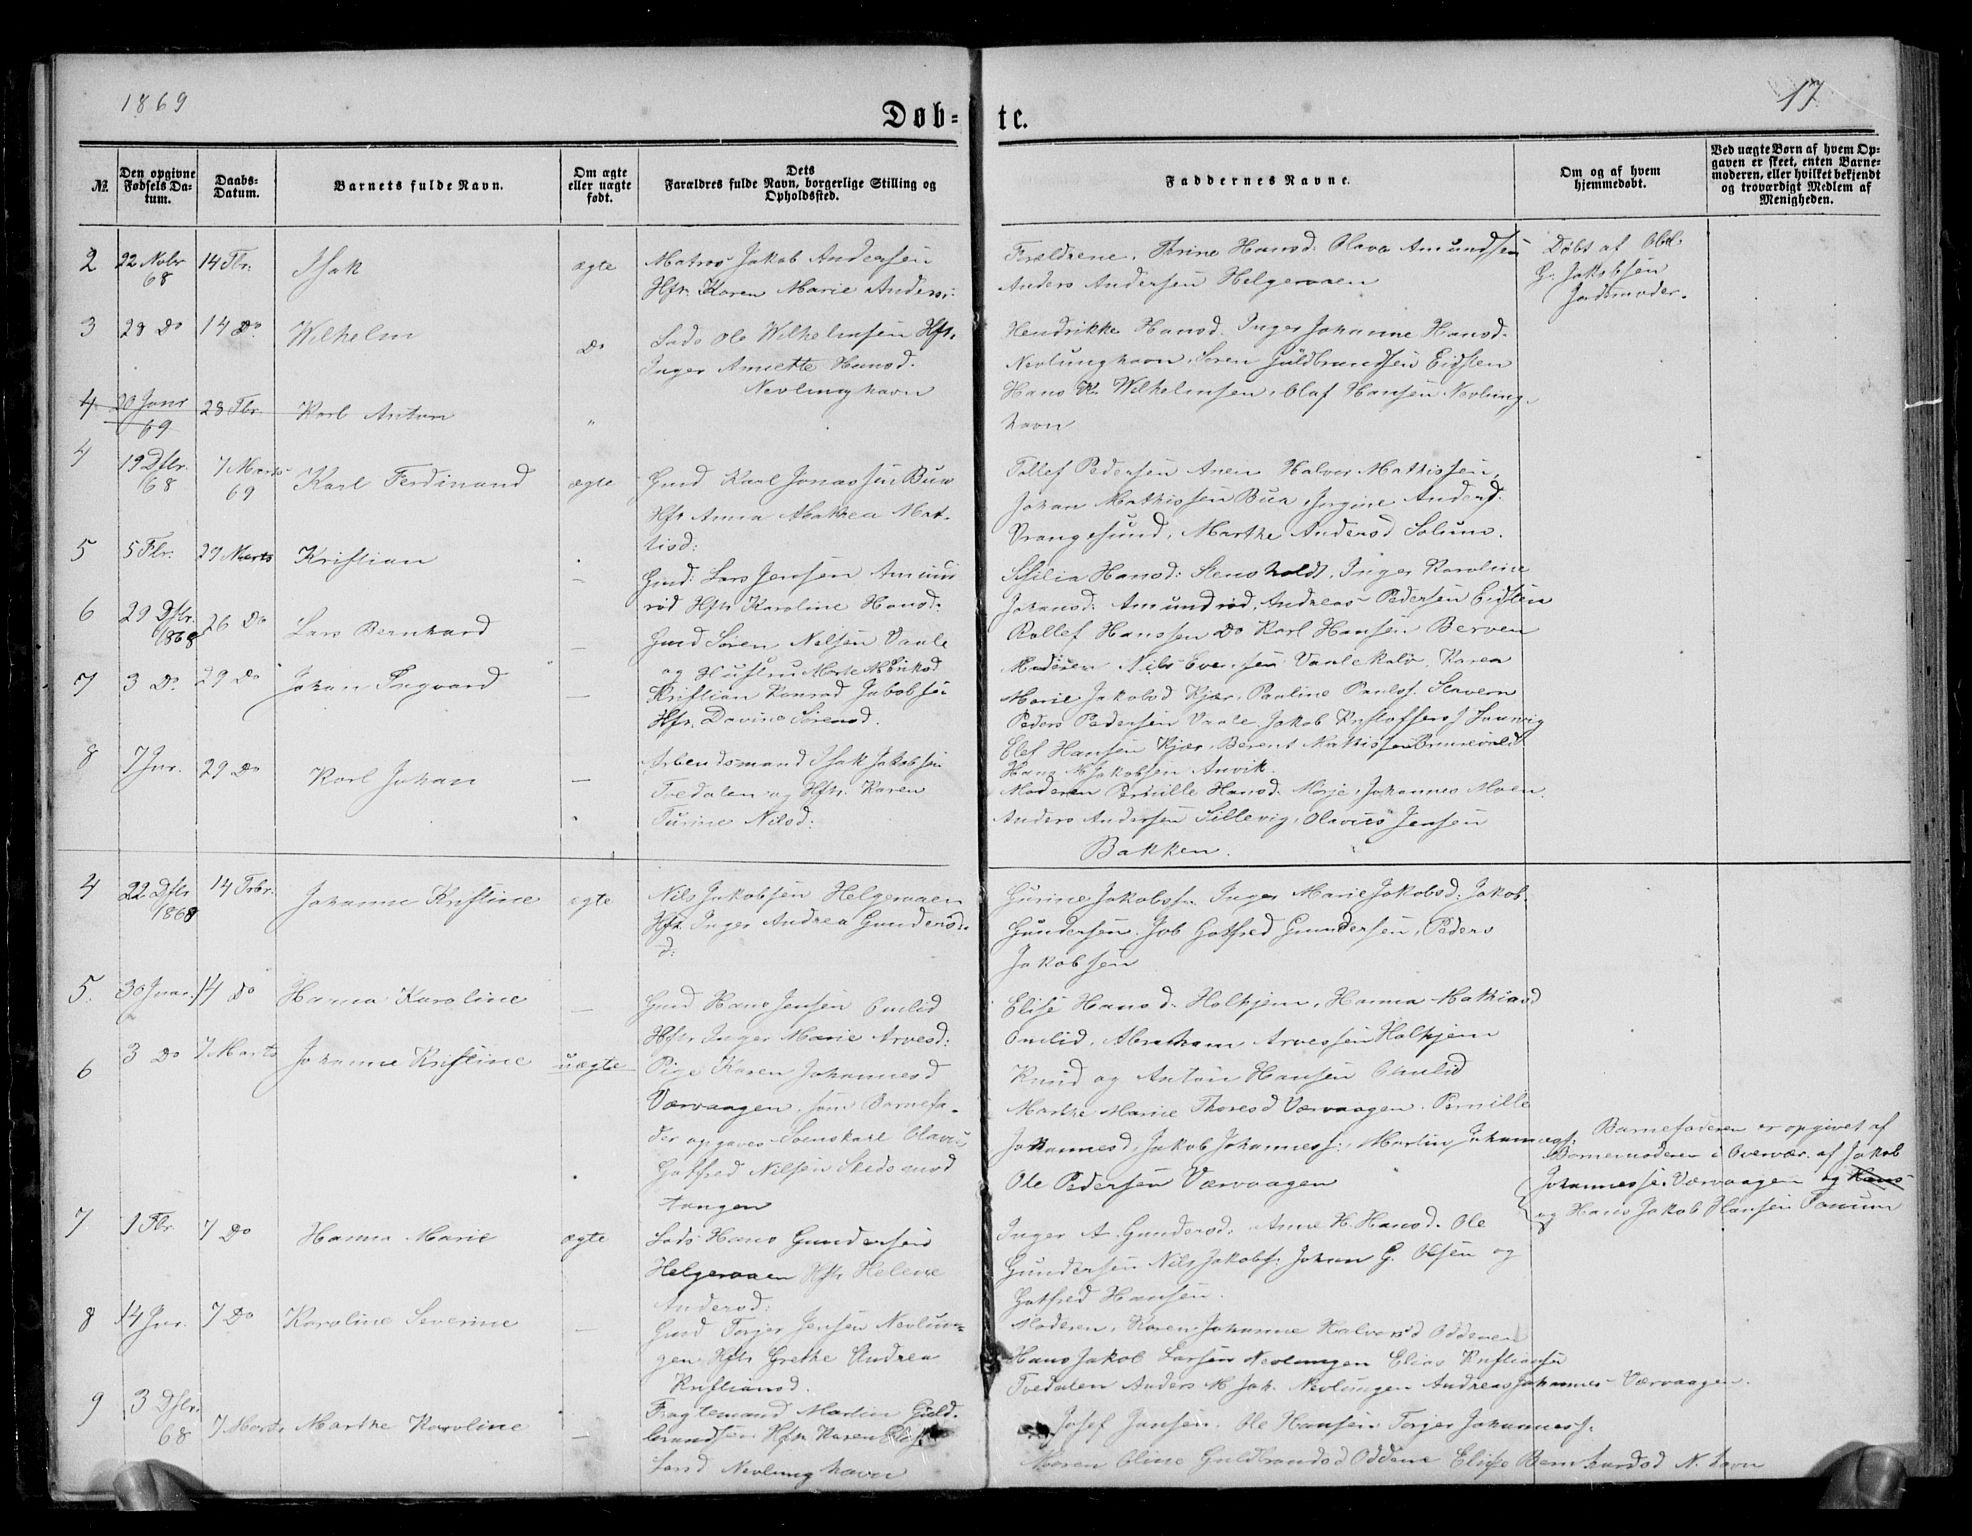 1869
17
Døb-
te.
№
Den opgivne Fødsels Da-tum.
Daabs-Datum.
Barnets fulde Navn.
Om ægte eller uægte født.
Dets Forældres fulde Navn, borgerlige Stilling og Opholdssted.
Faddernes Navne.
Om og af hvem hjemmedøbt.
Ved uægte Børn af hvem Op-gaven er skeet, enten Barne-moderen, eller hvilket bekjendt og troværdigt Medlem af Menigheden.
2
22 Novbr 68
14 Fbr.
Isak
ægte
Matros Jakob Andersen
Hfr. Karen Marie Anders:
Forældrene, Thrine Hansd. Olava Amundsen
Anders Andersen Helgeroaen
Døbt af
G. Jakobsen
Jordmoder.
3
28 Do
14 Do
Wilhelm
Do
Lods Ole Wilhelmsen Hfr.
Inger Annette Hansd.
Nevlunghavn
Hendrikke Hansd. Inger Johanne Hansd.
Nevlunghavn, Søren Guldbrandsen Eidsten
Hans K. Wilhelmsen, Olaf Hansen Nevlung-
havn
4
20 Janr 69
28 Fbr.
Karl Anton
"
4
19 Dsbr. 68
7 Marts 69
Karl Ferdinand
ægte
Gmd Karl Jonassen Bua
Hfr Anna Mathea Mat-
tisd:
Tollef Pedersen Anen Halvor Mathissen,
Johan Mathissen Bua, Jørgine Andersd.
Vrangesund, Marthe Andersd Solum.
5
5 Fbr.
27 Marts
Kristian
—
Gmd: Lars Jensen Amund
rød Hfr Karoline Hansd.
Silia Hansd: Stensholdt, Inger Karoline
Johansd. Amundrød, Andreas Pedersen Eidsten
Rollef Hanssen Do Karl Hansen Berven
6
29 Dsbr. 1868
26 Do
Lars Bernhard
—
Gmd Søren Nilsen Vaale
og Hustru Marte M Eriksd
Moderen Nils Evensen Vaalekalv, Karen
Marie Jakobsd Kjær, Pauline Paulss. Stavern
Peders Pedersen Vaale, Jakob Kristoffers Laurvig
7
3 Do.
29 Do
Johan Ingvard
—
Kristian Konrad Jakobsen
Hfr. Davine Sørensd.
Elef Hansen Kjær, Berent Mathissen
Hans M Jakobsen Anvik.
8
7 Jnr.
29 Do
Karl Johan
—
Arbeidsmand Isak Jakobsen
Tvedalen og Hfr. Karen
Turine Nilsd:
Moderen Pernille Hansd. Moje, Johannes Moen
Anders Andersen Sillevig, Olavus Jensen
Bakken.
4
22 Dsbr 1868
14 Febr.
Johanne Kristine
ægte
Nils Jakobsen Helgeroaen
Hfr. Inger Andrea Gunders-
d:
Gurine Jakobsn Inger Marie Jakobsd. Jakob
Gundersen. Job Gotfred Gundersen, Peders
Jakobsen
5.
30 Jnar.
14 Do
Hanna Karoline
—
Gmd Hans Jensen Omlid
Hfr Inger Marie Arvesd:
Elise Hansd. Holkjem, Hanna Mathiasd
Omlid, Abraham Arvessen Holkjem
Knud og Anton Hansen Omlid
6
3 Do
7 Marts
Johanne Kristine
uægte
Pige Karen Johannesd
Værvaagen. som Barnefa-
der opgaves Svenskarl Olavus
Gotfred Nilsen
tangen
Marthe Marie Thoresd Værvaagen. Pernille
Johannesd, Jakob Johanness:, Martin Johanness:
Ole Pedersen Værvaagen
Barnefaderen er opgivet af
Barnemoderen i Overvær. af Jakob
Johannessen Værvaagen og Hans
og Hans Jakob Hansen
7
1 Fbr.
7 Do
Hanna Marie
ægte
Lods Hans Gundersen
Helgeroaen Hfr Helene
Andersd:
Inger A. Gundersd. Anne H. Hansd. Ole
Gundersen Nils Jakobs. Johan G. Olsen og
Gotfred Hansen.
8
14 Jnr.
7 Do
Karoline Severine
—
Gmd Torjer Jensen Nevlun-
gen Hfr Grethe Andrea
Kristiansd.
Moderen, Karen Johanne Halvorsd Oddenen
Hans Jakob Larsen Nevlungen Elias Kristiansen
Tvedalen Anders M Joh. Nevlungen Andreas Johannes Værvaagen.
9
3 Dsbr. 68
7 Marts
Marthe Karoline
—
Fragtemand Martin Guld-
brandsen Hfr. Karen
Nevlunghavn
Josef Jansen. Ole Hansen Torger Johanness.
Maren Oline Guldbrandsd Oddene Elise Bernhardsd N. havn